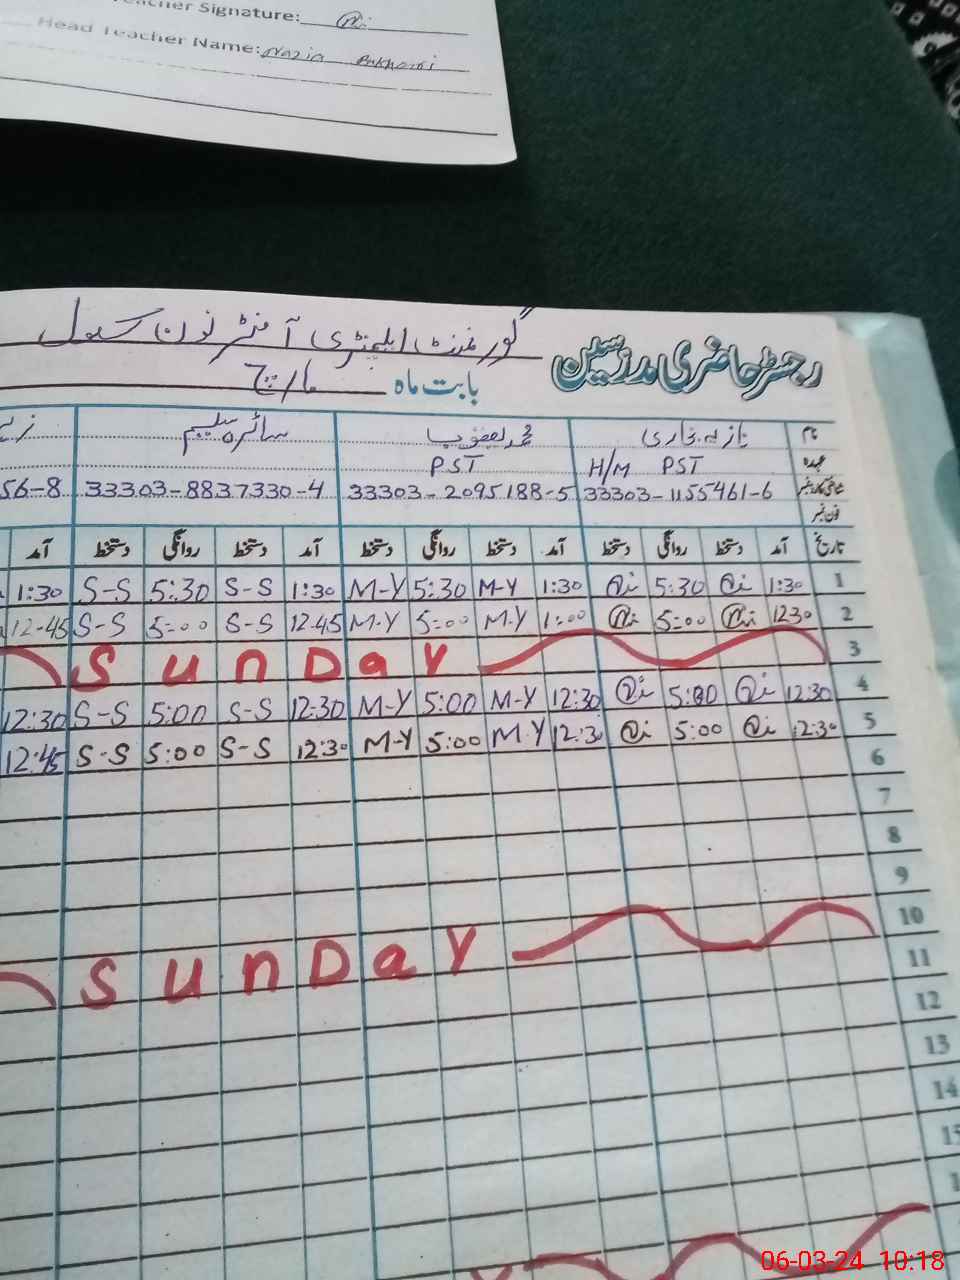 Teacher Signature:
Head Teacher Name: Nazia Bukhari
گورنمنٹ ایلیمنٹری آفٹر نون سکول
رجسٹر حاضری مدرسین
بابت ماہ مارچ
نام نازیہ بخاری محمد یعقوب سائرہ سلیم
عہدہ H/M PST PST
شناختی کارڈ نمبر 33303-1155461-6 33303-2095188-5 33303-8837330-4 56-8
فون نمبر
تاریخ آمد دستخط روانگی دستخط آمد دستخط روانگی دستخط آمد دستخط روانگی دستخط آمد
1 1:30 5:30 1:30 M-Y 5:30 M-Y 1:30 S-S 5:30 S-S 1:30
2 12:30 5:00 1:00 M-Y 5:00 M-Y 12-45 S-S 5:00 S-S 12-45
3 SUNDAY
4 12:30 5:00 12:30 M-Y 5:00 M-Y 12:30 S-S 5:00 S-S 12:30
5 12:30 5:00 12:3 M-Y 5:00 M-Y 12:30 S-S 5:00 S-S 12:45
6
7
8
9
10 SUNDAY
11
12
13
14
15
06-03-24 10:18